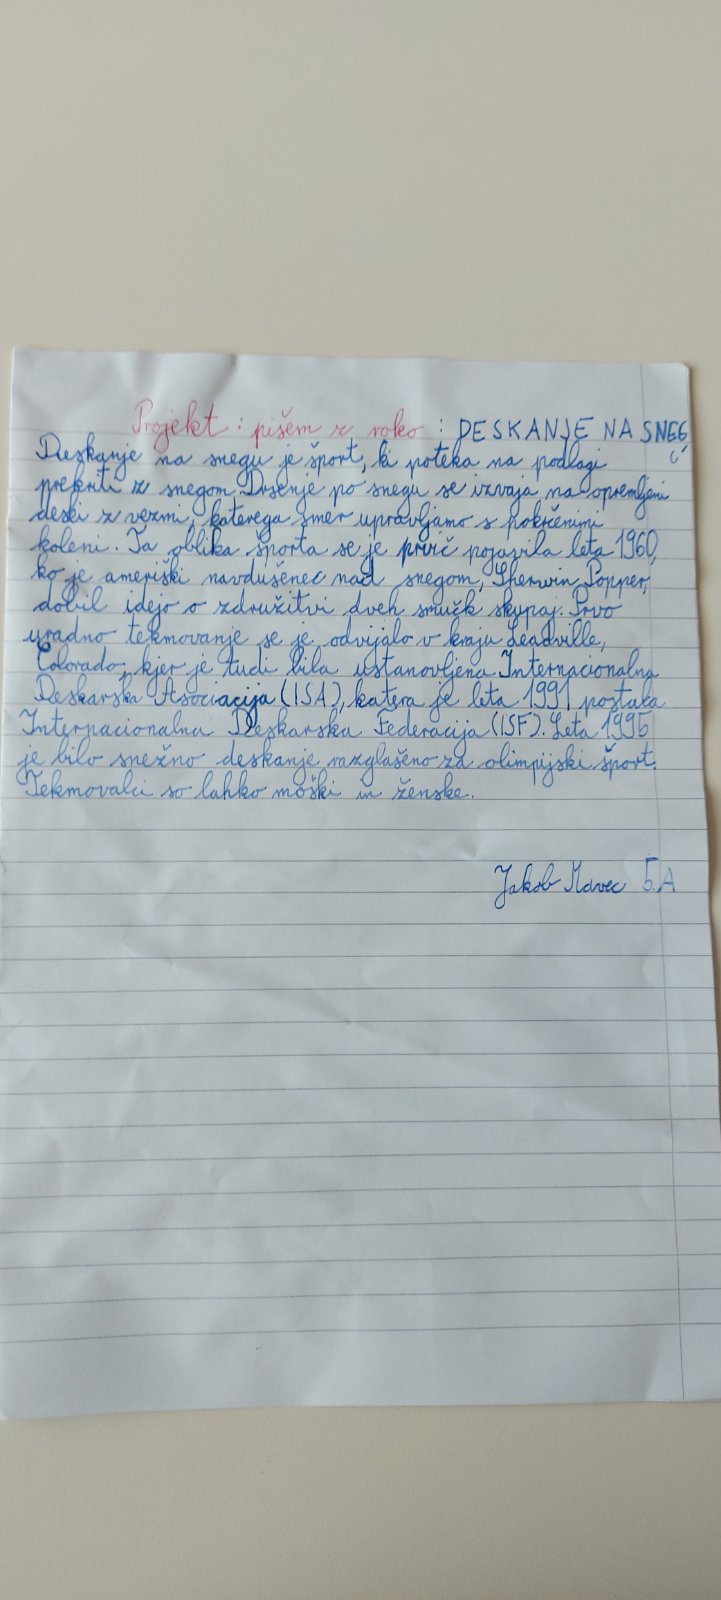 Projekt: pišem z roko: DESKANJE NA SNEGU
Deskanje na snegu je šport, ki poteka na podlagi
prekriti z snegom. Drsenje po snegu se izvaja na opremljeni
deski z vezmi, katerega smer upravljamo s pokrčenimi
koleni. Ta oblika športa se je prvič pojavila leta 1960,
ko je ameriški navdušenec nad snegom, Sherwin Popper,
dobil idejo o združitvi dveh smučk skupaj. Prvo
uradno tekmovanje se je odvijalo v kraju Leadville,
Colorado, kjer je tudi bila ustanovljena Internacionalna
Deskarska Asociacija (ISA), katera je leta 1991 postala
Internacionalna Deskarska Federacija (ISF). Leta 1995
je bilo snežno deskanje razglašeno za olimpijski šport.
Tekmovalci so lahko moški in ženske.
Jakob Mavec 5.A